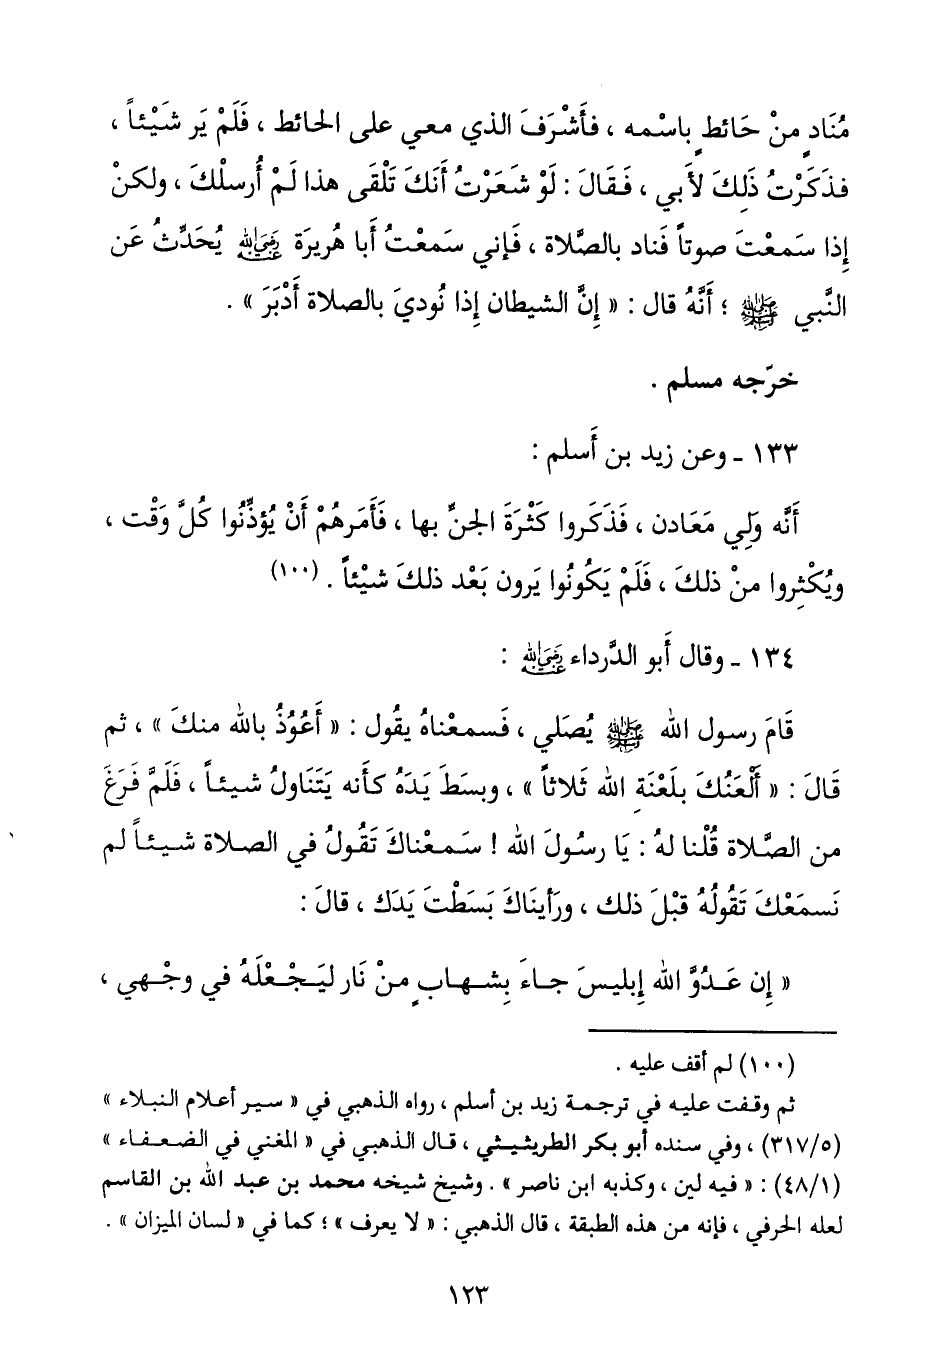 مُنَادٍ منْ حَائطٍ باسْمه ، فأَشْرَفَ الذي معي على الحائط ، فَلَمْ يَر شَيْئاً ،
فذكَرْتُ ذَلِكَ لأَبي ، فَقَالَ : لَوْ شعَرْتُ أَنَكَ تَلْقَى هذا لَمْ أُرسلْكَ ، ولكنْ
إِذا سَمعْتَ صوتاً فَناد بالصَّلاة ، فَإني سَمعْتُ أبا هُريرَة رضي الله عنه يُحَدِّثُ عَن
النَّبي ﷺ ؛ أَنَّهُ قال : « إِنَّ الشيطان إِذا نُوديَ بالصلاة أَدْبَرَ » .
خرّجه مسلم .
١٣٣ ـ وعن زيد بن أَسلم :
أَنَّه وَلِي مَعَادن ، فَذكَروا كَثْرَةَ الجنِّ بها ، فَأَمَرهُمْ أَنْ يُؤذِّنُوا كُلَّ وَقْت ،
ويُكْثِروا منْ ذلكَ ، فَلَمْ يَكُونُوا يَرون بَعْد ذلكَ شيْئاً . (١٠٠)
١٣٤ ـ وقال أَبو الدَّرداء رضي الله عنه :
قَامَ رسول الله ﷺ يُصَلي ، فَسمعْناهُ يقُول : « أَعُوُذُ بالله منكَ » ، ثم
قَالَ : « أَلْعَنُكَ بلَعْنَةِ الله ثَلاثاً » ، وبسَطَ يَدَهُ كأَنه يَتَنَاولُ شيئاً ، فَلَمَّ فَرَغَ
من الصَّلاة قُلْنا لهُ : يَا رسُولَ الله ! سَمعْناكَ تَقُولُ في الصلاة شيئاً لم
نَسمَعْكَ تَقُولُهُ قبْلَ ذلك ، ورَأيناكَ بَسَطْتَ يَدَك ، قالَ :
« إِن عَدُوَّ الله إِبليسَ جاءَ بِشهابٍ منْ نَار ليَجْعْلَهُ في وجْهي ،
(١٠٠) لم أقف عليه .
ثم وقفت عليه في ترجمة زيد بن أسلم ، رواه الذهبي في « سير أعلام النبلاء »
(٥/٣١٧) ، وفي سنده أبو بكر الطريثيثي ، قال الذهبي في « المغني في الضعفاء »
(٤٨/١) : « فيه لين ، وكذبه ابن ناصر » . وشيخ شيخه محمد بن عبد الله بن القاسم
لعله الحرفي ، فإنه من هذه الطبقة ، قال الذهبي : « لا يعرف » ؛ كما في « لسان الميزان » .
١٢٣